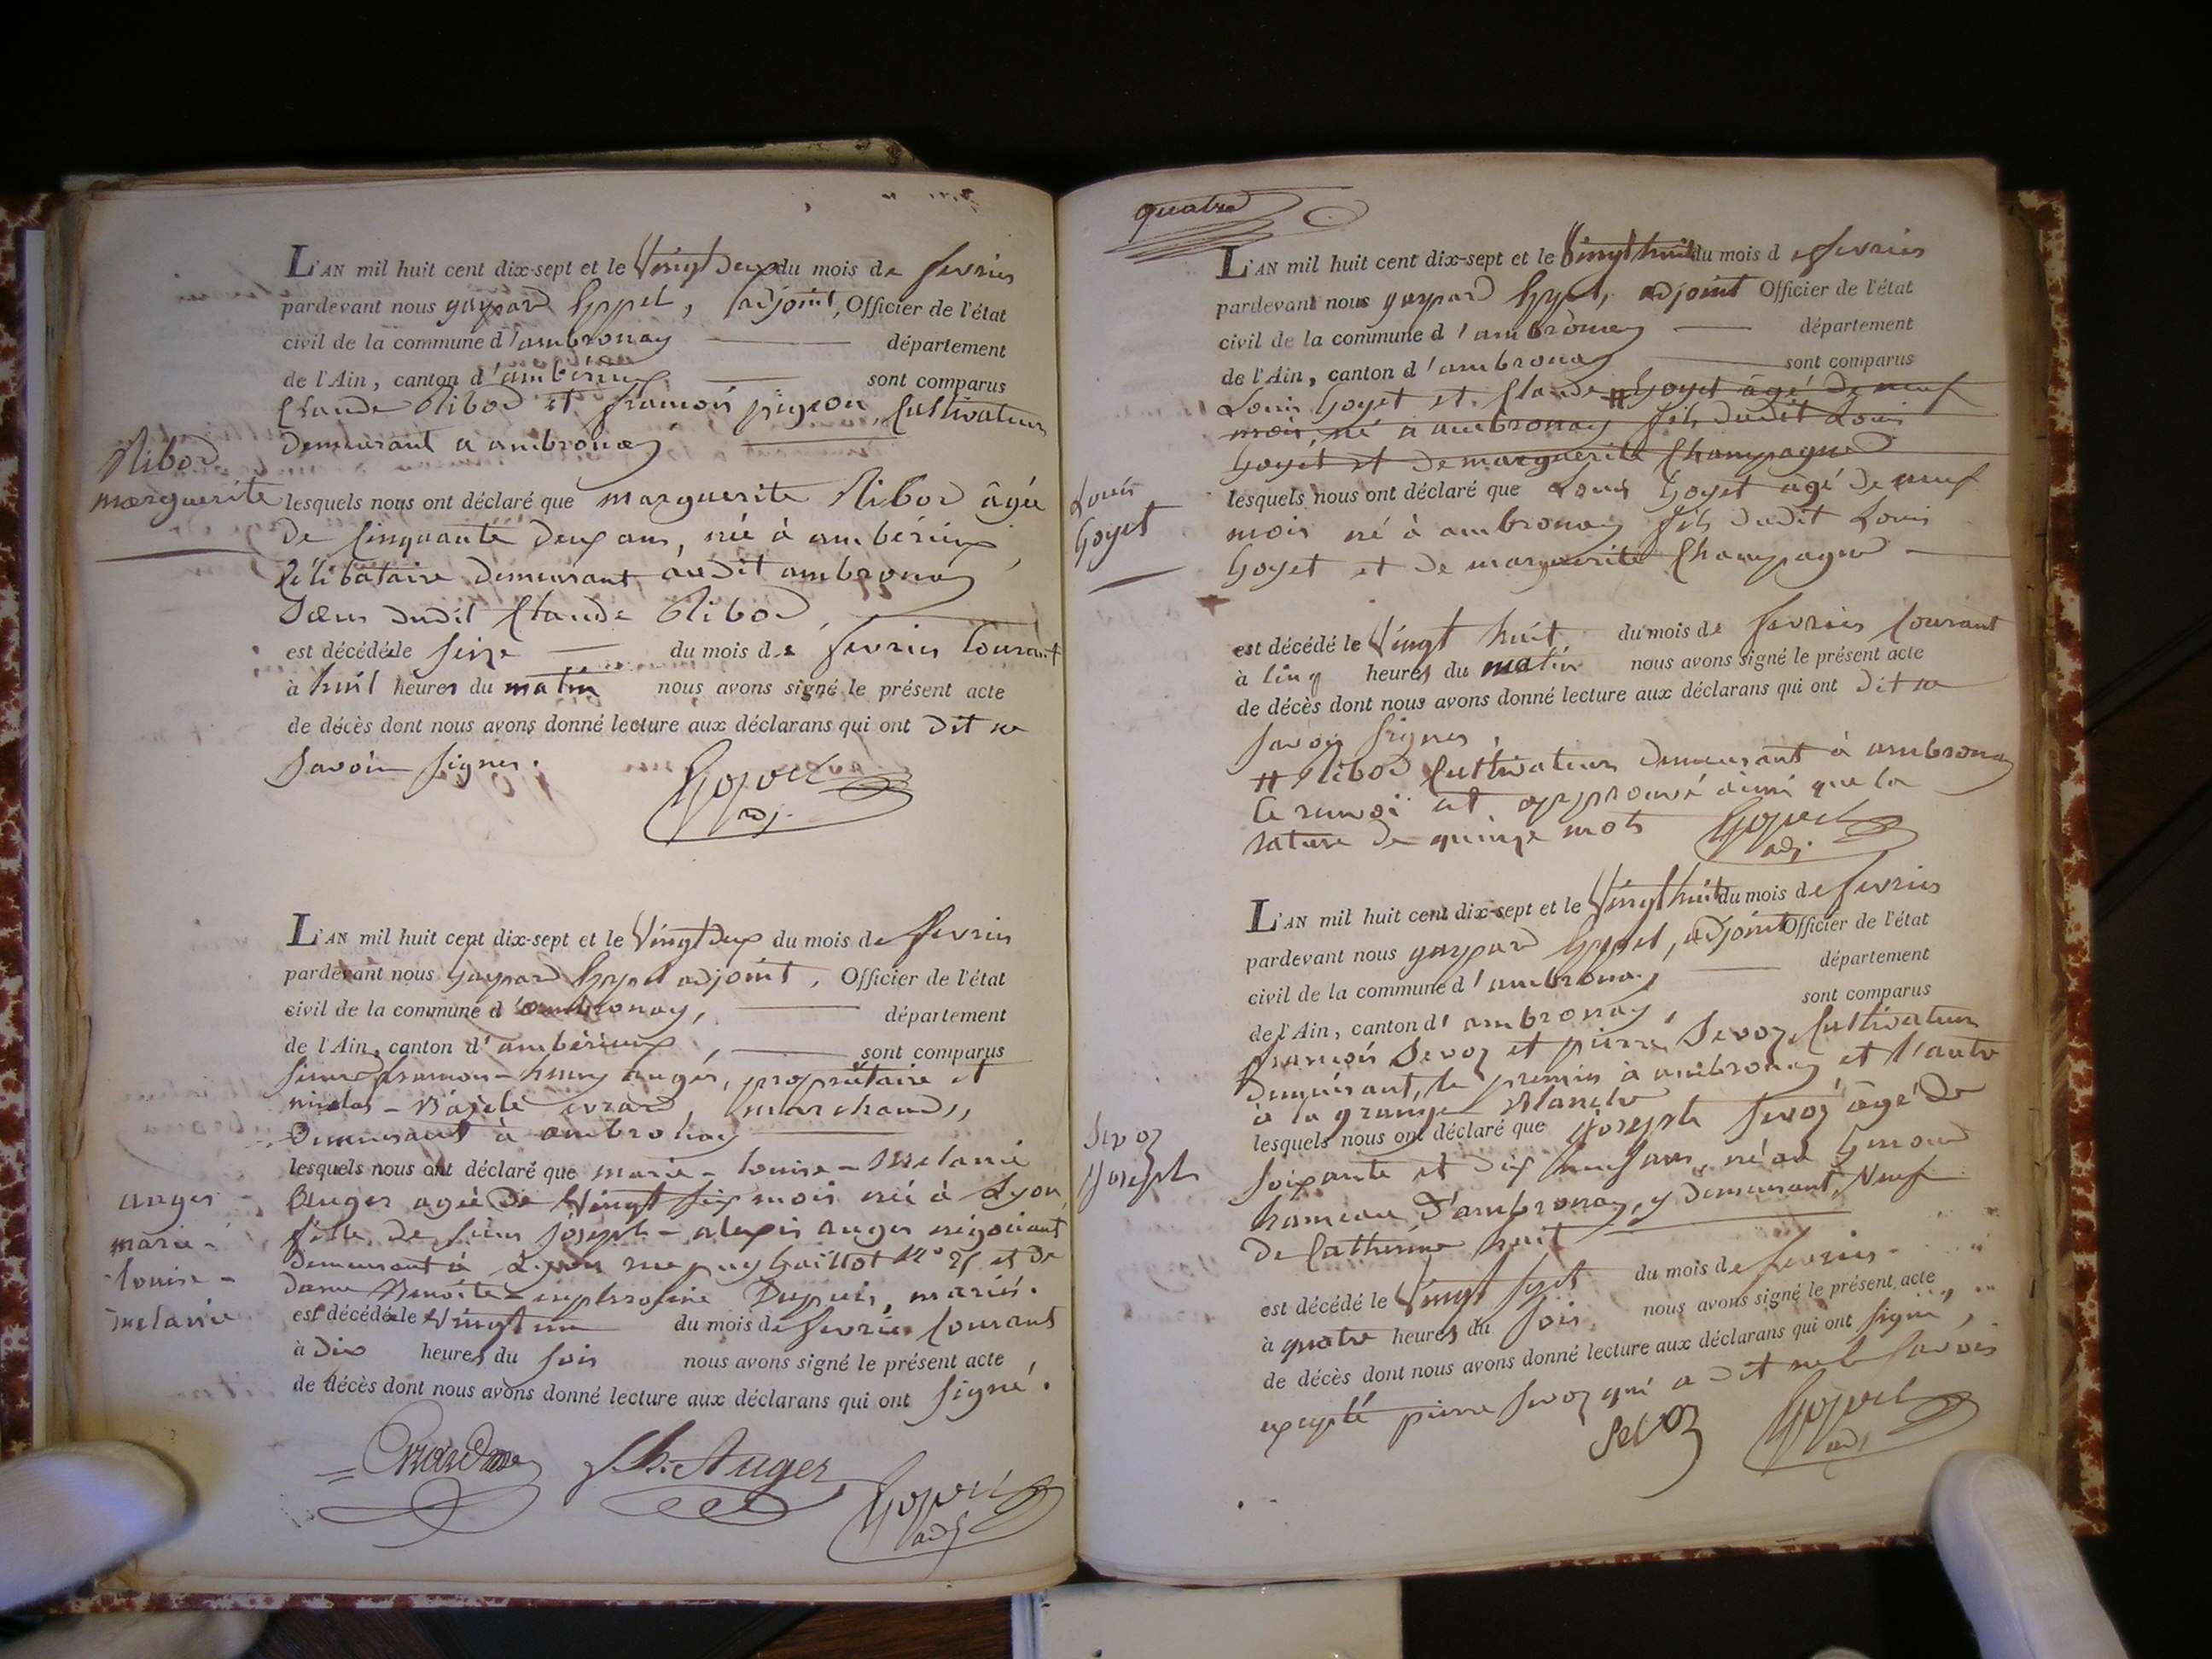 L'AN mil huit cent dix-sept et le Vingt Deux du mois de fevrier
pardevant nous gaspard adjoint, Officier de l'état
civil de la commune d'ambronay département
de l'Ain, canton d'ambérieux sont comparus
Claude Ribod et francois pigeon, Cultivateurs
Demeurant a ambronay
Ribod
marguerite
lesquels nous ont déclaré que marguerite Ribod âgée
De Cinquante Deux ans, née à ambérieux,
Célibataire Demeurant audit ambronay
Sœur dudit Claude Ribod,
est décédée le seize du mois de fevrier Courant
à huit heures du matin nous avons signé le présent acte
de décès dont nous avons donné lecture aux déclarans qui ont dit ne
Savoir signer.
adj.
L'AN mil huit cent dix-sept et le Vingt deux du mois de fevrier
pardevant nous Gaspard adjoint, Officier de l'état
civil de la commune d'ambronay, département
de l'Ain, canton d'ambérieux, sont comparus
Sieurs francois-henry auger, propriétaire et
nicolas-Bazile evrard, marchand,
Demeurant à ambronay
anger
marie-
louise-
melanie
lesquels nous ont déclaré que marie-louise-Melanie
Auger agée De Vingt six mois née à Lyon
fille de sieur joseph-alexis auger négociant
Demeurant à Lyon rue puy Gaillot N° 25 et de
dame Benoite Dupuis, mariés.
est décédée le Vingt un du mois de fevrier Courant
à Dix heures du soir nous avons signé le présent acte
de décès dont nous avons donné lecture aux déclarans qui ont signé.
Auger
adj
quatre
L'AN mil huit cent dix-sept et le Vingt huit du mois de fevrier
pardevant nous gaspard adjoint Officier de l'état
civil de la commune d'ambronay département
de l'Ain, canton d'ambronay sont comparus
Louis Goyet et Claude # Goyet âgé de neuf
mois, né à ambronay fils dudit Louis
Goyet et De marguerite Champagne
Louis
Goyet
lesquels nous ont déclaré que Louis Goyet agé de neuf
mois né à ambronay fils dudit Louis
Goyet et de marguerite Champagne
est décédé le Vingt huit du mois de fevrier Courant
à Cinq heures du matin nous avons signé le présent acte
de décès dont nous avons donné lecture aux déclarans qui ont dit ne
savoir signer.
# Ribod Cultivateurs Demeurant à ambronay
Ce renvoi est approuvé ainsi que la
rature de quinze mots
adj.
L'AN mil huit cent dix-sept et le Vingt huit du mois de fevrier
pardevant nous gaspard adjoint Officier de l'état
civil de la commune d'ambronay département
de l'Ain, canton d'ambronay, sont comparus
francois Sevoz et pierre Sevoz, Cultivateurs
Demeurant, le premier à ambronay et l'autre
à la grange Blanche
Sevoz
Joseph
lesquels nous ont déclaré que Joseph Sevoz âgé De
soixante et dix neuf ans, né au
hameau D'ambronay, y demeurant, Veuf
De Catherine huit
est décédé le Vingt sept du mois de fevrier
à quatre heures du soir nous avons signé le présent acte
de décès dont nous avons donné lecture aux déclarans qui ont signé,
excepté pierre Sevoz qui a dit ne le savoir
Sevoz
adj